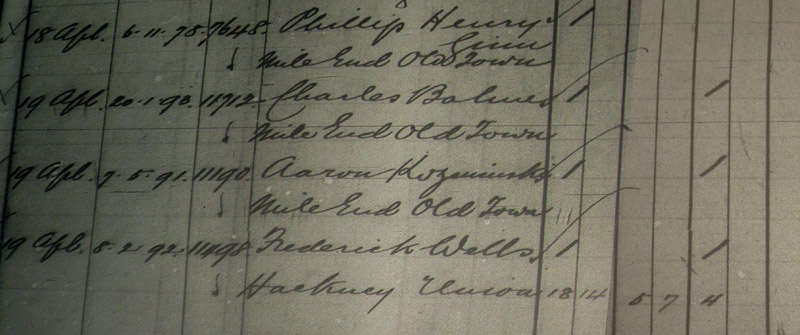 18 Apl. 6-11-75. 7648. Phillip Henry 1
Ginn
Mile End Old Town
19 Apl. 20-1-93. 11712. Charles 1 1
Mile End Old Town
19 Apl. 7-5-91. 11190. Aaron Kozminski 1 1
Mile End Old Town
19 Apl. 8-2-92. 11498. Frederick Wells 1 1
Hackney Union 18 14 5 7 4